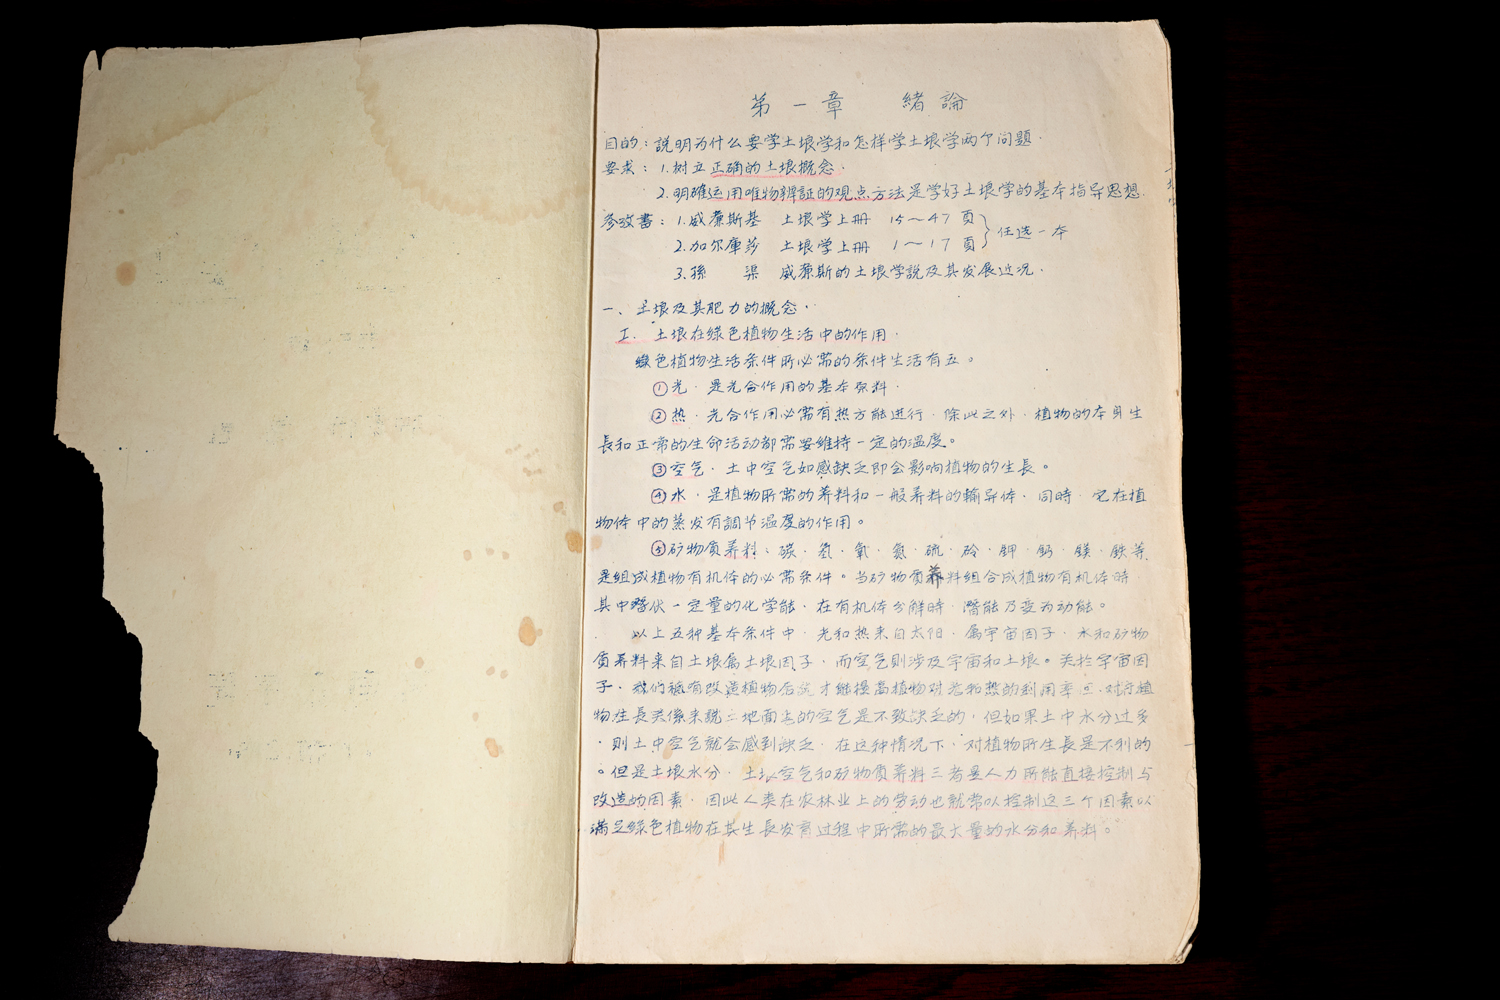 第一章 緒論
目的：説明为什么要学土壤学和怎样学土壤学两个问題．
要求：1.树立正确的土壤概念．
2.明確运用唯物辨証的观点方法是学好土壤学的基本指导思想．
参攷書：1.威廉斯基 土壤学上册 15～47頁
2.加尔庫莎 土壤学上册 1～17頁 } 任选一本
3.孫 渠 威廉斯的土壤学説及其发展近况．
一、土壤及其肥力的概念．
I. 土壤在綠色植物生活中的作用．
綠色植物生活条件所必需的条件生活有五。
①光．是光合作用的基本原料．
②热．光合作用必需有热方能进行．除此之外．植物的本身生
長和正常的生命活动都需要維持一定的温度。
③空气．土中空气如感缺乏即会影响植物的生長。
④水．是植物所需的养料和一般养料的輸导体．同時．它在植
物体中的蒸发有調节温度的作用。
⑤矿物质养料：碳．氢．氧．氮．硫．磷．鉀．鈣．鎂．鉄等
是組成植物有机体的必需条件。当矿物质养料組合成植物有机体時．
其中潛伏一定量的化学能．在有机体分解時．潛能乃变为动能。
以上五种基本条件中．光和热来自太阳．属宇宙因子．水和矿物
质养料来自土壤属土壤因子．而空气则涉及宇宙和土壤。关於宇宙因
子．我們 有改造植物后 才能提高植物对光和热的利用率 ．对於植
物生長关係来説 地面 的空气是不致缺乏的．但如果土中水分过多
．则土中空气就会感到缺乏．在这种情况下．对植物所生長是不利的
。但是土壤水分．土壤空气和矿物质养料三者是人力所能直接控制与
改造的因素．因此人类在农林业上的劳动也就常以控制这三个因素以
满足綠色植物在其生長发育过程中所需的最大量的水分和养料。